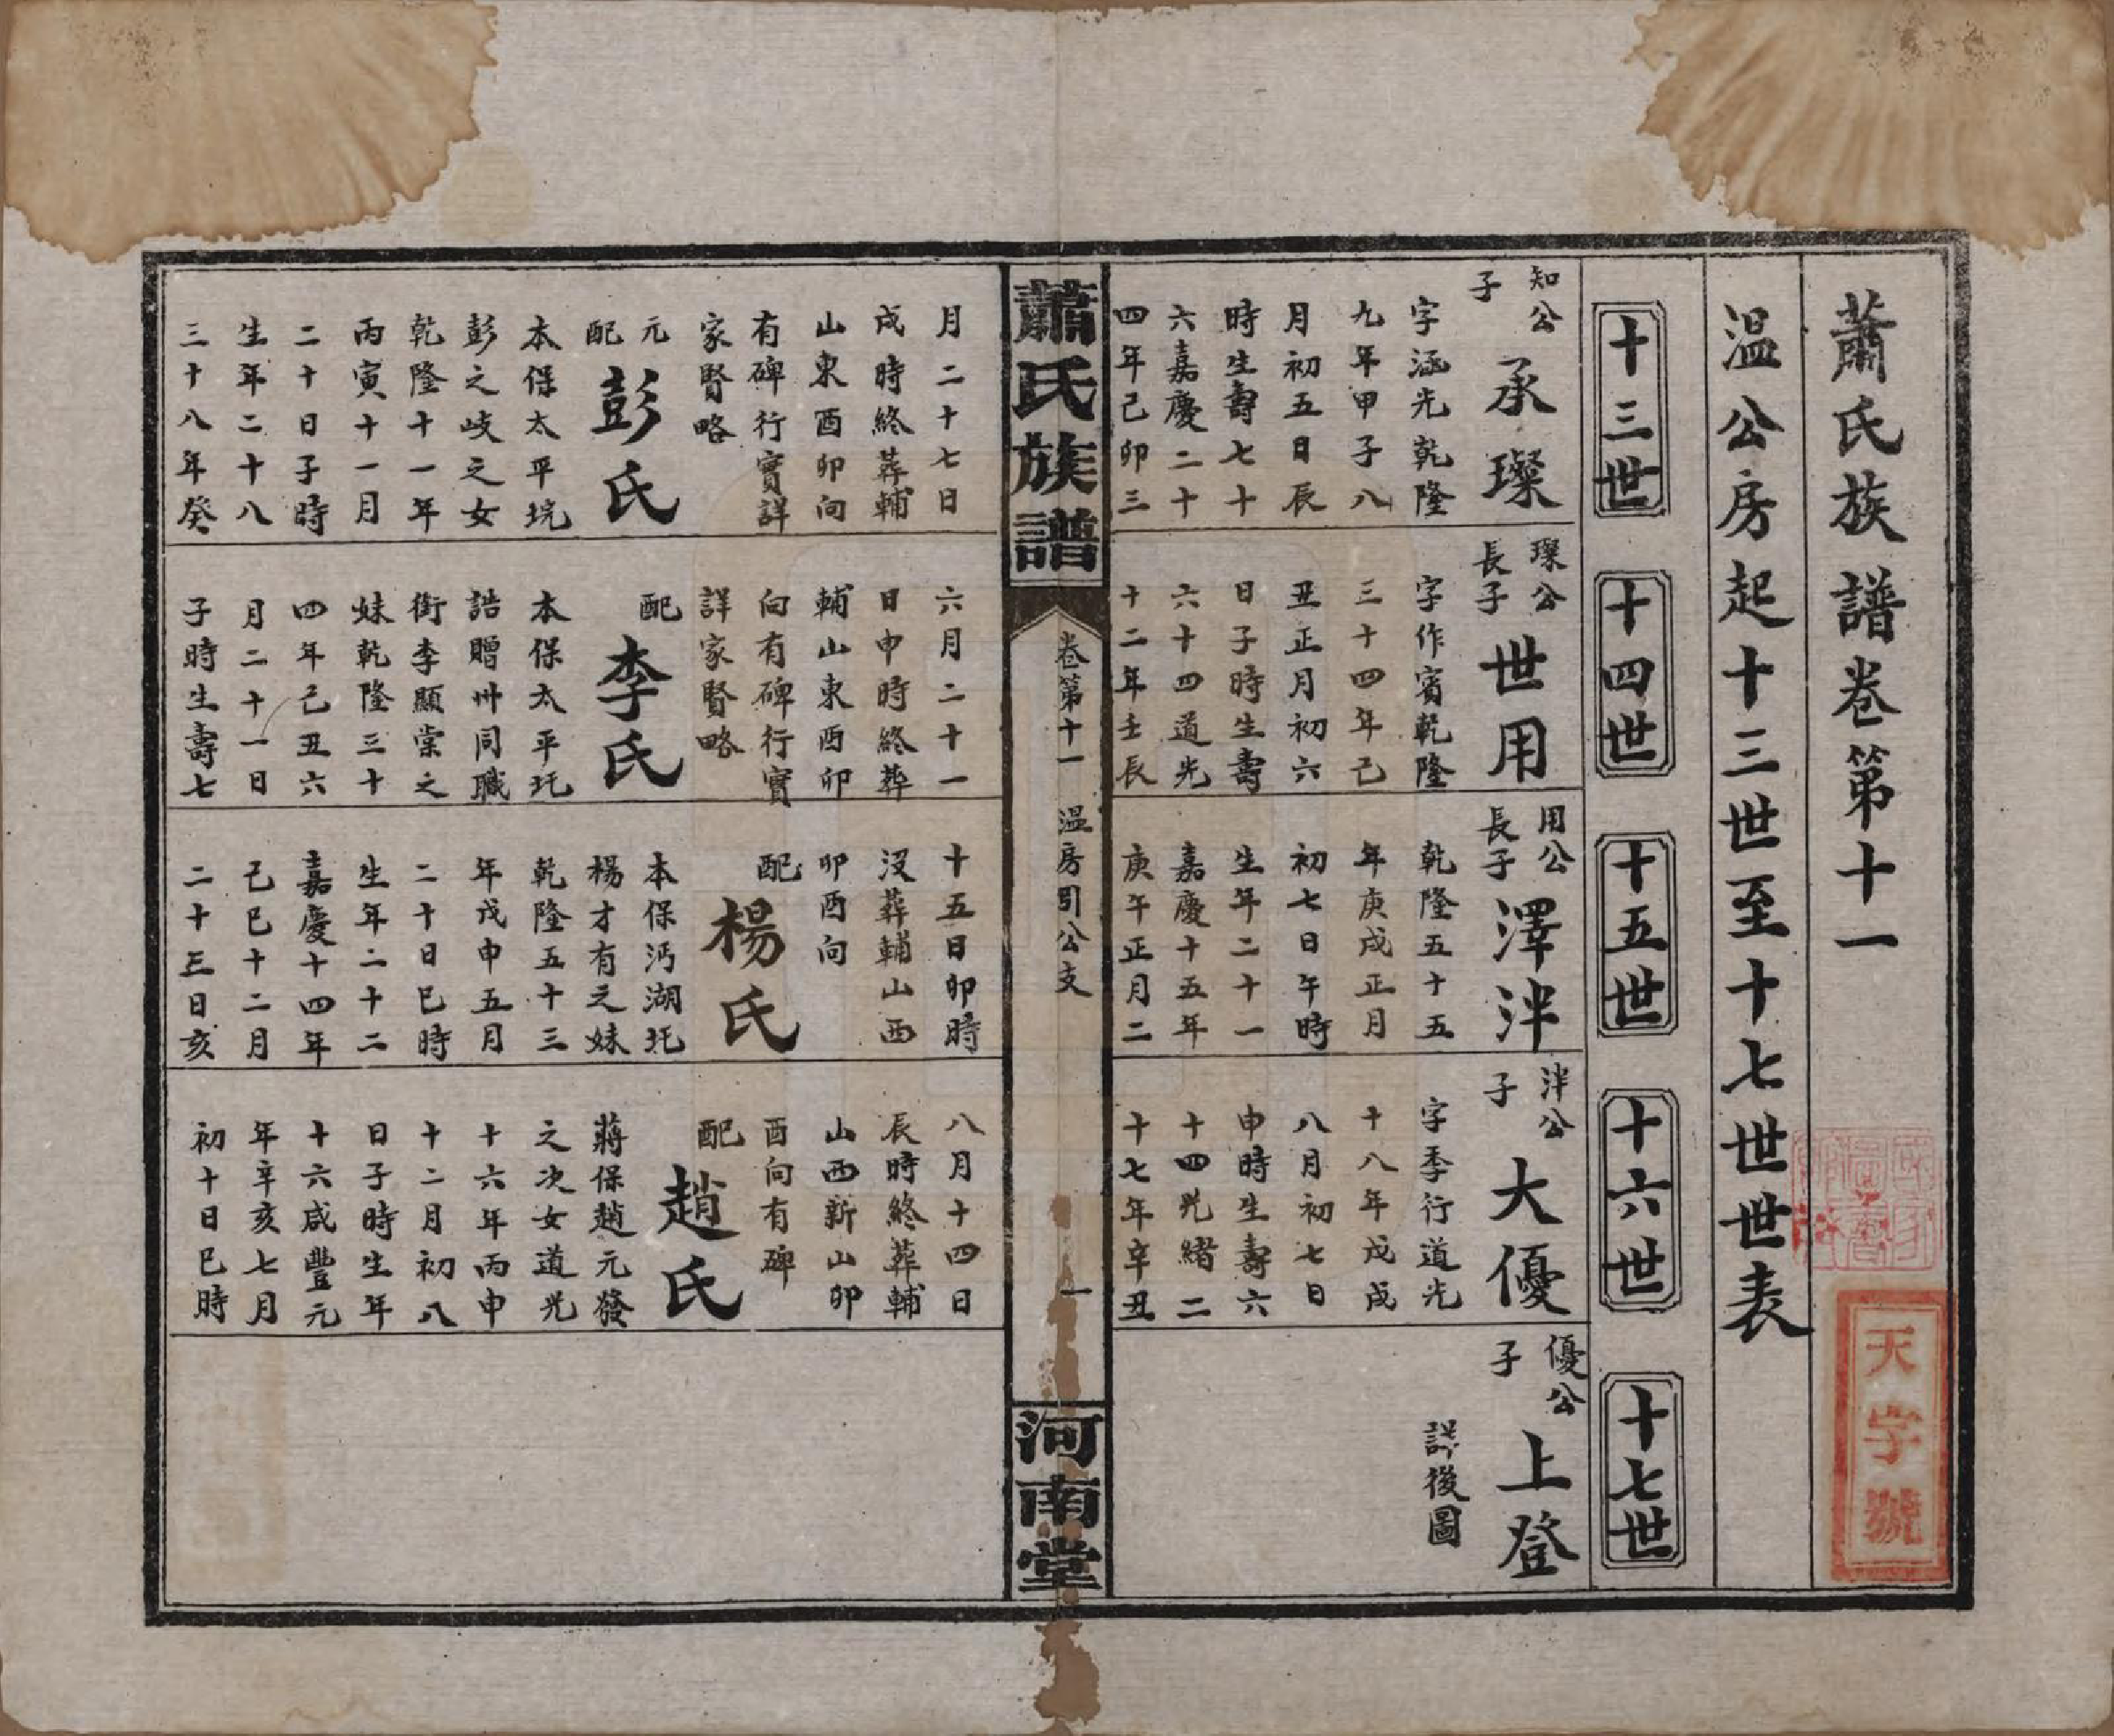 蕭氏族譜卷第十一
温公房起十三世至十七世世表
十三世
十四世
十五世
十六世
十七世
知公
子
承璨
字涵光乾隆
九年甲子八
月初五日辰
時生壽七十
六嘉慶二十
四年己卯三
月二十七日
戌時終葬輔
山東酉卯向
有碑行實詳
家賢略
元
配
彭氏
本保太平垸
彭之岐之女
乾隆十一年
丙寅十一月
二十日子時
生年二十八
三十八年癸
璨公
長子
世用
字作賓乾隆
三十四年己
丑正月初六
日子時生壽
六十四道光
十二年壬辰
六月二十一
日申時終葬
輔山東酉卯
向有碑行實
詳家賢略
配
李氏
本保太平圫
誥贈州同職
銜李顯棠之
妹乾隆三十
四年己丑六
月二十一日
子時生壽七
用公
長子
澤泮
乾隆五十五
年庚戌正月
初七日午時
生年二十一
嘉慶十五年
庚午正月二
十五日卯時
沒葬輔山西
卯酉向
配
楊氏
本保沔湖圫
楊才有之妹
乾隆五十三
年戊申五月
二十日巳時
生年二十二
嘉慶十四年
己巳十二月
二十三日亥
泮公
子
大優
字季行道光
十八年戊戌
八月初七日
申時生壽六
十四光緒二
十七年辛丑
八月十四日
辰時終葬輔
山西新山卯
酉向有碑
配
趙氏
蔣保趙元發
之次女道光
十六年丙申
十二月初八
日子時生年
十六咸豐元
年辛亥七月
初十日巳時
優公
子
上登
詳後圖
蕭氏族譜
卷第十一 温房引公支
一
河南堂
天字號